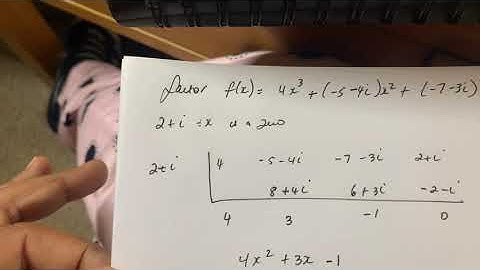 factor f(x) = 4x³ + (-5-4i)x² + (-7-3i)
2+i = x is a zero
2+i | 4 -5-4i -7-3i 2+i
8+4i 6+3i -2-i
4 3 -1 0
4x² + 3x -1